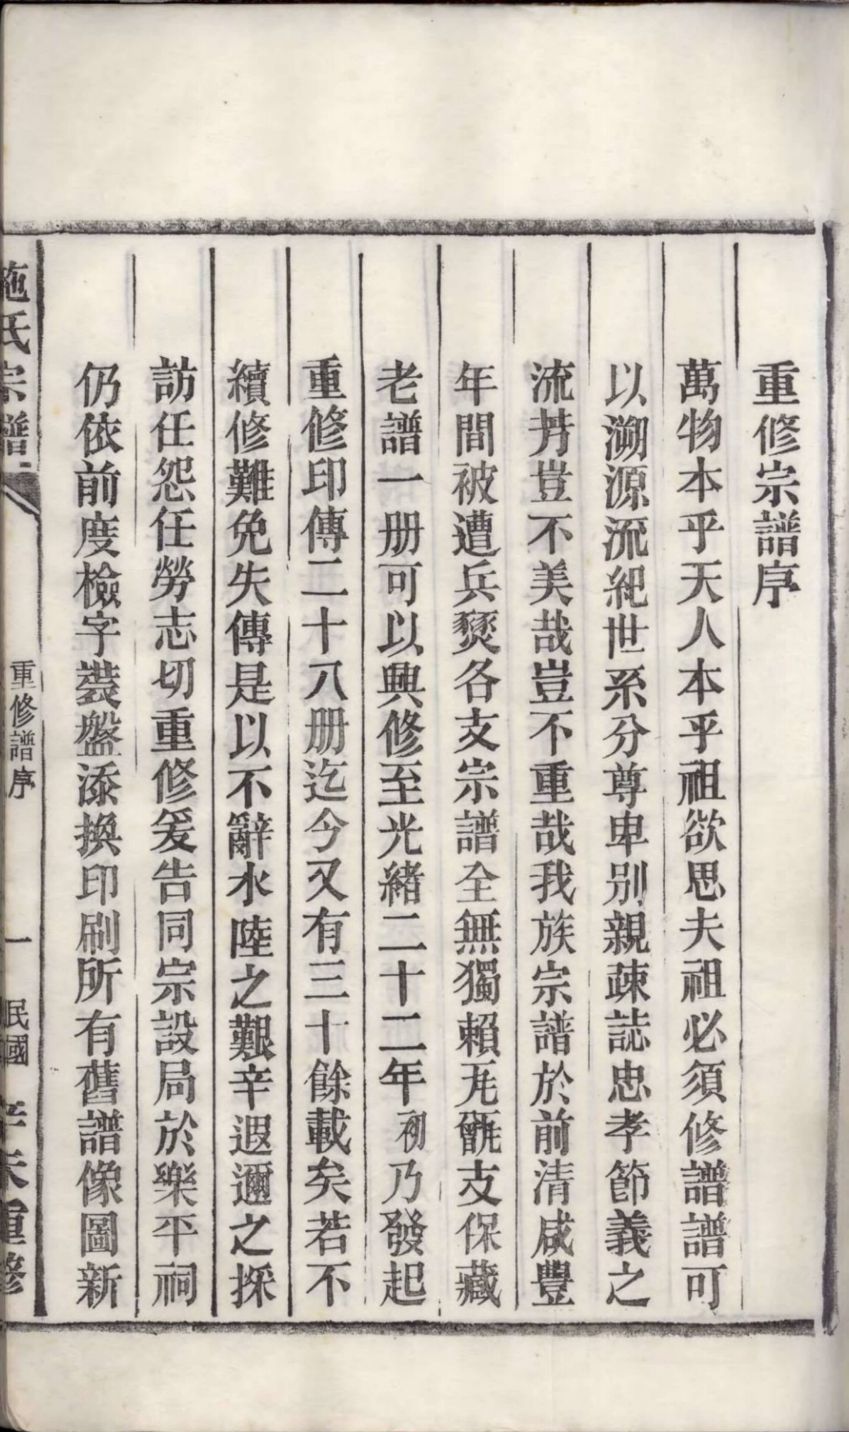 重修宗譜序
萬物本乎天人本乎祖欲思夫祖必須修譜譜可
以溯源流紀世系分尊卑別親疎誌忠孝節義之
流芳豈不美哉豈不重哉我族宗譜於前清咸豐
年間被遭兵燹各支宗譜全無獨賴旄甑支保藏
老譜一册可以興修至光緒二十二年初乃發起
重修印傳二十八册迄今又有三十餘載矣若不
續修難免失傳是以不辭水陸之艱辛遐邇之採
訪任怨任勞志切重修爰告同宗設局於樂平祠
仍依前度檢字裝盤添換印刷所有舊譜像圖新
施氏宗譜
重修譜序
一
民國
辛未重修